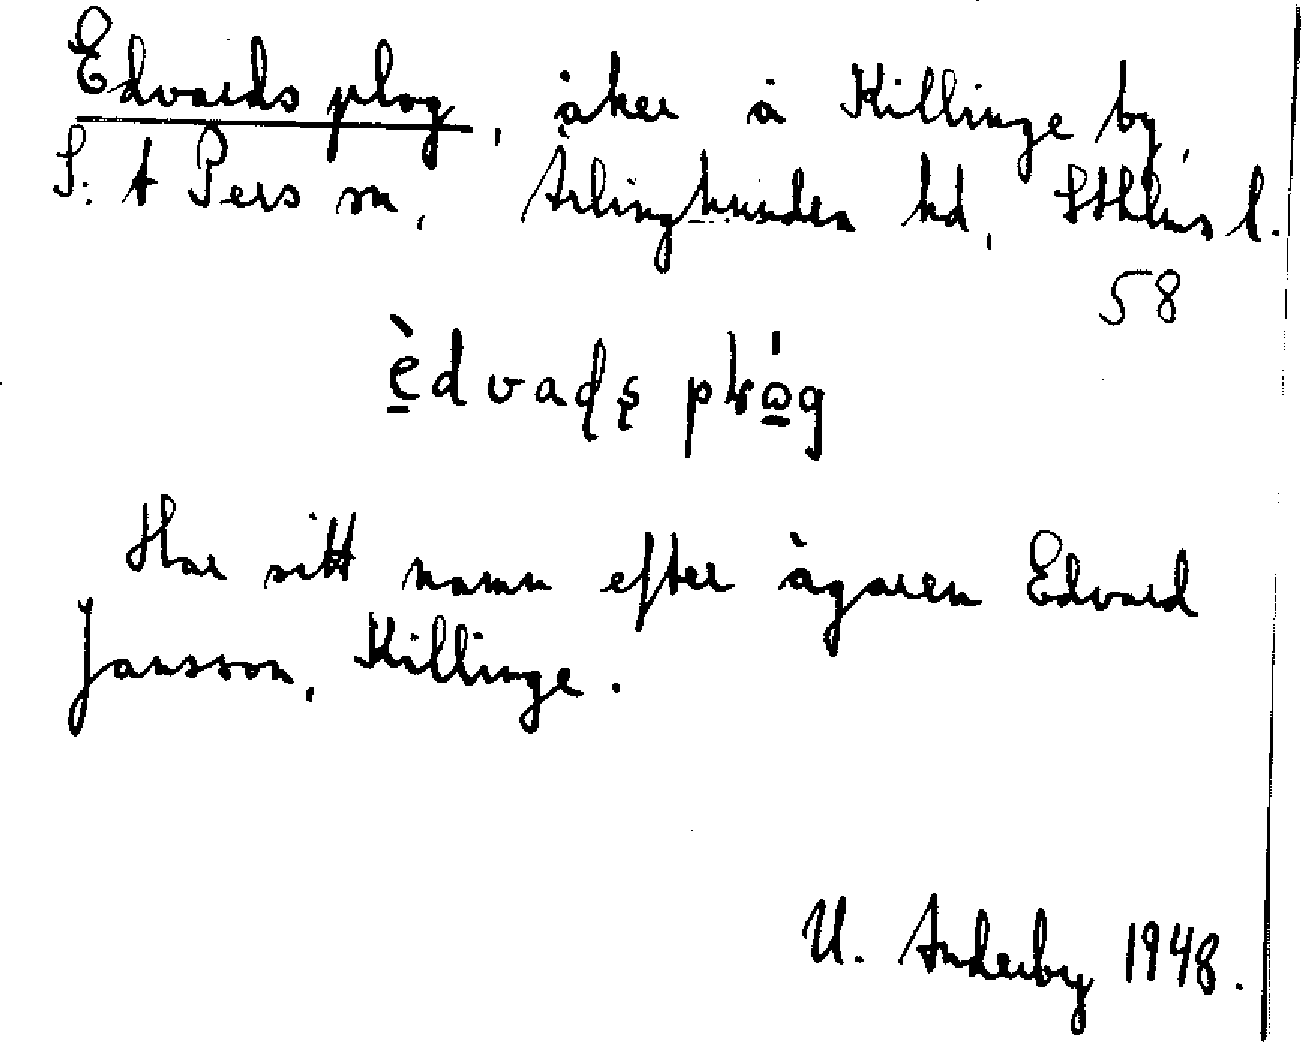 Edvards plog, åker å Killinge by,
S:t Pers sn, Ärlinghundra hd, Sthlms l.
58
èdvadş plóg
Har sitt namn efter ägaren Edvard
Jansson, Killinge.
U. Anderby 1948.